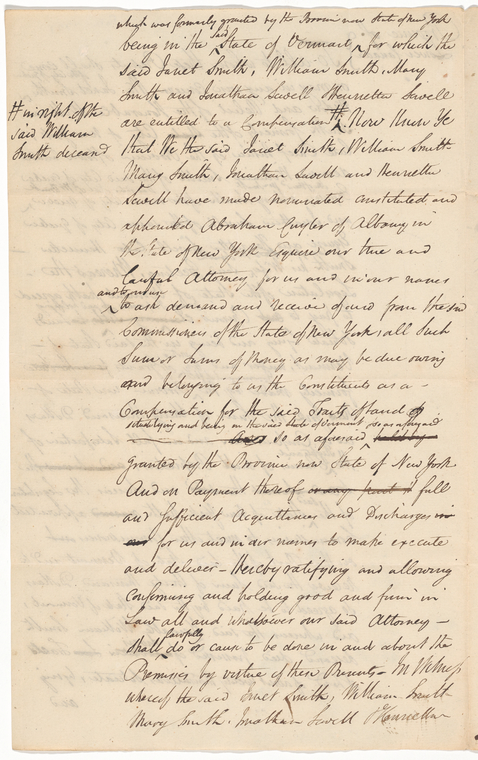 which was formerly granted by the Province now State of New York
being in the said State of Vermont for which the
said Janet Smith, William Smith, Mary
Smith and Jonathan Sewell Henrietta Sewell
are entitled to a Compensation # Now Know Ye
# in right of the
said William
Smith deceased
that We the said Janet Smith, William Smith
Mary Smith, Jonathan Sewell and Henrietta
Sewell have made nominated constituted and
appointed Abraham Cuyler of Albany in
the State of New York Esquire our true and
Lawful Attorney for us and in our names
and to our use
to ask demand and receive of and from the said
Commissioners of the State of New York, all such
Sum or Sums of Money as may be due owing
and belonging to us the Constituents as a
Compensation for the said Tracts of Land
situate lying and being in the said State of Vermont so as aforesaid
so as aforesaid held by
granted by the Province now State of New York
And on Payment thereof or any part of full
and Sufficient Acquittances and Discharges in
our for us and in our names to make execute
and deliver - Hereby ratifying and allowing
confirming and holding good and firm in
Law all and whatsoever our said Attorney -
shall lawfully do or cause to be done in and about the
Premises by virtue of these Presents - In Witness
whereof the said Janet Smith, William Smith
Mary Smith, Jonathan Sewell & Henrietta